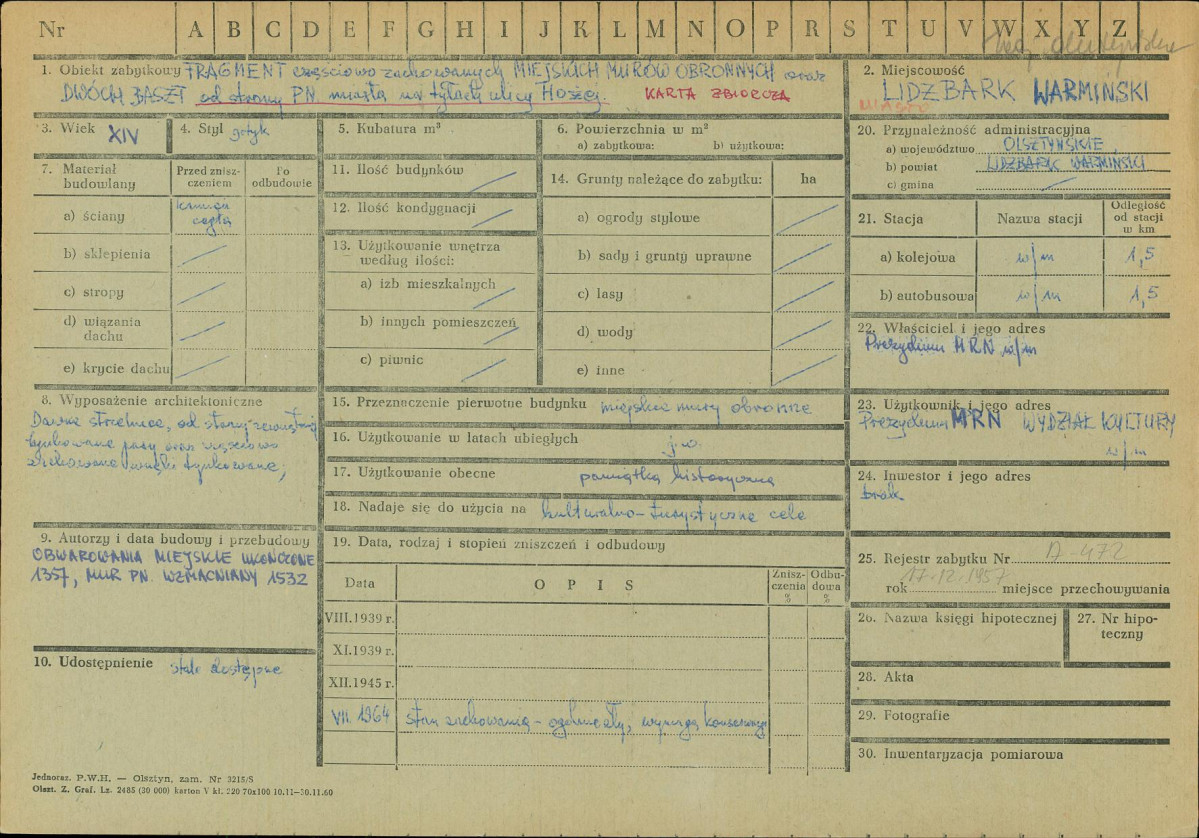 Nr A B C D E F G H I J K L M N O P R S T U V W X Y Z
woj. olsztyńskie
1. Obiekt zabytkowy FRAGMENT częściowo zachowanych MIEJSKICH MURÓW OBRONNYCH oraz
DWÓCH BASZT od strony PN. miasta na tyłach ulicy Hożej. KARTA ZBIORCZA
2. Miejscowość
LIDZBARK WARMIŃSKI
MIASTO
3. Wiek XIV
4. Styl gotyk
5. Kubatura m³
6. Powierzchnia w m²
a) zabytkowa: b) użytkowa:
20. Przynależność administracyjna
a) województwo OLSZTYŃSKIE
b) powiat LIDZBARK WARMIŃSKI
c) gmina
7. Materiał
budowlany
Przed znisz-
czeniem
Po
odbudowie
a) ściany
cegła
b) sklepienia
c) stropy
d) wiązania
dachu
e) krycie dachu
11. Ilość budynków
12. Ilość kondygnacji
13. Użytkowanie wnętrza
według ilości:
a) izb mieszkalnych
b) innych pomieszczeń
c) piwnic
14. Grunty należące do zabytku: ha
a) ogrody stylowe
b) sady i grunty uprawne
c) lasy
d) wody
e) inne
21. Stacja Nazwa stacji
Odległość
od stacji
w km
a) kolejowa w/m 1,5
b) autobusowa w/m 1,5
22. Właściciel i jego adres
Prezydium MRN w/m
8. Wyposażenie architektoniczne
Dawne strzelnice, od strony zewnętrznej
tynkowane pasy oraz częściowo
zachowane wnęki tynkowane;
15. Przeznaczenie pierwotne budynku miejskie mury obronne
16. Użytkowanie w latach ubiegłych j.w.
17. Użytkowanie obecne pamiątka historyczna
18. Nadaje się do użycia na kulturalno-turystyczne cele
23. Użytkownik i jego adres
Prezydium MRN WYDZIAŁ KULTURY
w/m
24. Inwestor i jego adres
brak
9. Autorzy i data budowy i przebudowy
OBWAROWANIA MIEJSKIE UKOŃCZONE
1357, MUR PN. WZMACNIANY 1532
19. Data, rodzaj i stopień zniszczeń i odbudowy
Data O P I S
Znisz-
czenia
%
Odbu-
dowa
%
VIII.1939 r.
XI.1939 r.
XII.1945 r.
VII. 1964 stan zachowania - ogólnie zły, wymaga konserwacji
25. Rejestr zabytku Nr A-472
rok 17.12.1957 miejsce przechowywania
26. Nazwa księgi hipotecznej
27. Nr hipo-
teczny
10. Udostępnienie stale dostępne
28. Akta
29. Fotografie
30. Inwentaryzacja pomiarowa
Jednoraz. P.W.H. — Olsztyn, zam. Nr 3215/S
Olszt. Z. Graf. Lz. 2485 (30 000) karton V kl. 220 70x100 10.11—30.11.60